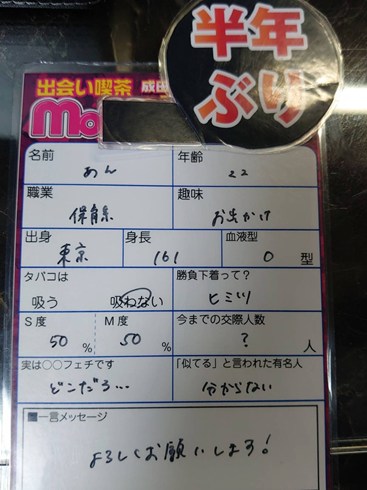 半年
ぶり
出会い喫茶 成田
Mo
名前 年齢
あん 22
職業 趣味
保育系 お出かけ
出身 身長 血液型
東京 161 O 型
タバコは 勝負下着って?
吸う 吸わない ヒミツ
S度 M度 今までの交際人数
50 % 50 % ? 人
実は〇〇フェチです 「似てる」と言われた有名人
どこだろ… 分からない
■一言メッセージ
よろしくお願いします!